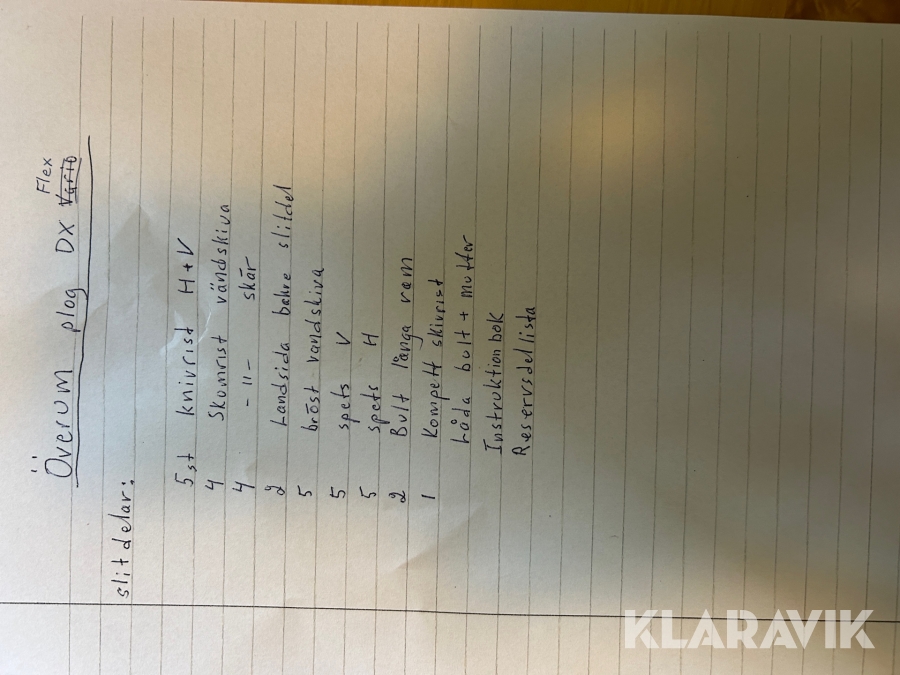 Överum plog DX Vario Flex
slitdelar:
5 st knivrist H+V
4 Skumrist vändskiva
4 - " - skär
2 Landsida bakre slitdel
5 bröst vandskiva
5 spets V
5 spets H
2 Bult långa ram
1 Kompett skivrist
Låda bult + mutter
Instruktionbok
Reservsdellista
KLARAVIK